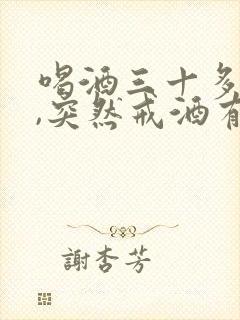 喝酒三十多
,突然戒酒有
謝杏芳